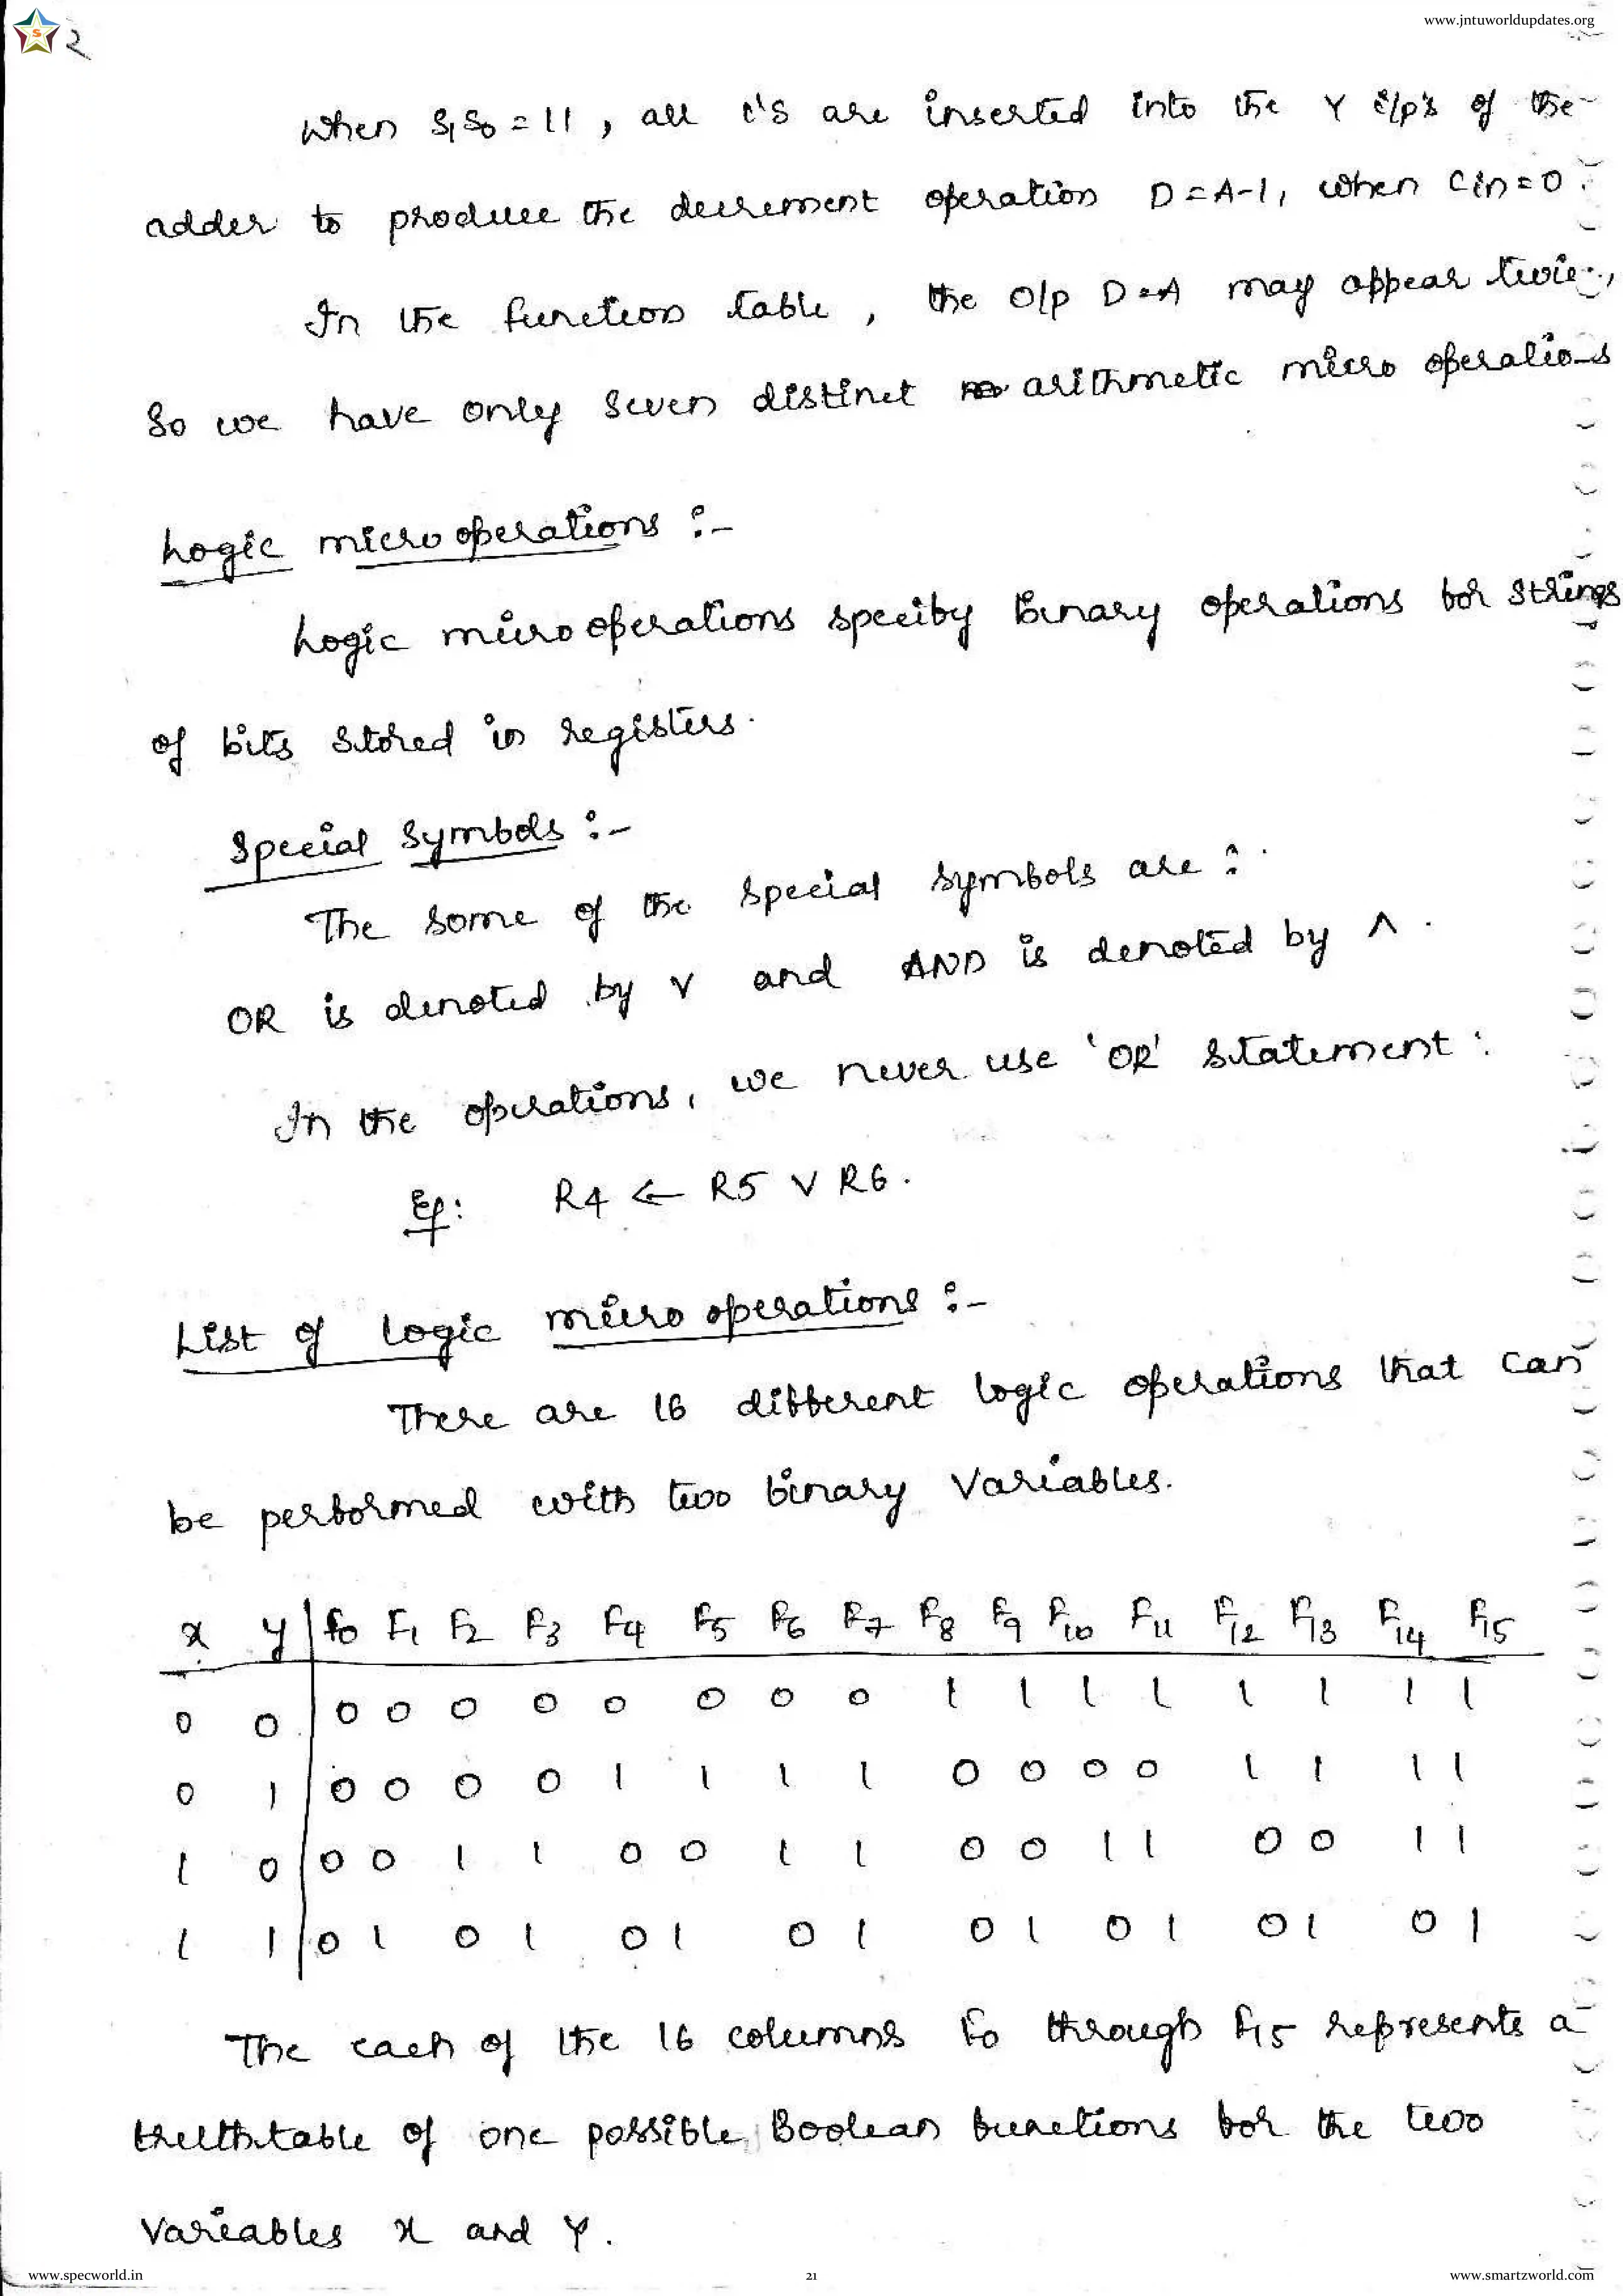 www.jntuworldupdates.org
S
2
When S1S0 = 11, all 1's are inserted into the Y i/p's of the
adder to produce the decrement operation D = A-1, when Cin = 0.
In the function table, the o/p D=A may appear twice,
So we have only seven distinct arithmetic micro operations
Logic micro operations :-
Logic micro operations specify Binary operations for strings
of bits stored in registers.
Special Symbols :-
The some of the special symbols are :
OR is denoted by ∨ and AND is denoted by ∧.
In the operations, we never use 'OR' statement.
Eg: R4 ← R5 ∨ R6.
List of logic micro operations :-
There are 16 different logic operations that can
be performed with two binary variables.
x y F0 F1 F2 F3 F4 F5 F6 F7 F8 F9 F10 F11 F12 F13 F14 F15
0 0 0 0 0 0 0 0 0 0 1 1 1 1 1 1 1 1
0 1 0 0 0 0 1 1 1 1 0 0 0 0 1 1 1 1
1 0 0 0 1 1 0 0 1 1 0 0 1 1 0 0 1 1
1 1 0 1 0 1 0 1 0 1 0 1 0 1 0 1 0 1
The each of the 16 columns F0 through F15 represents a
truthtable of one possible Boolean functions for the two
Variables x and y.
www.specworld.in 21 www.smartzworld.com